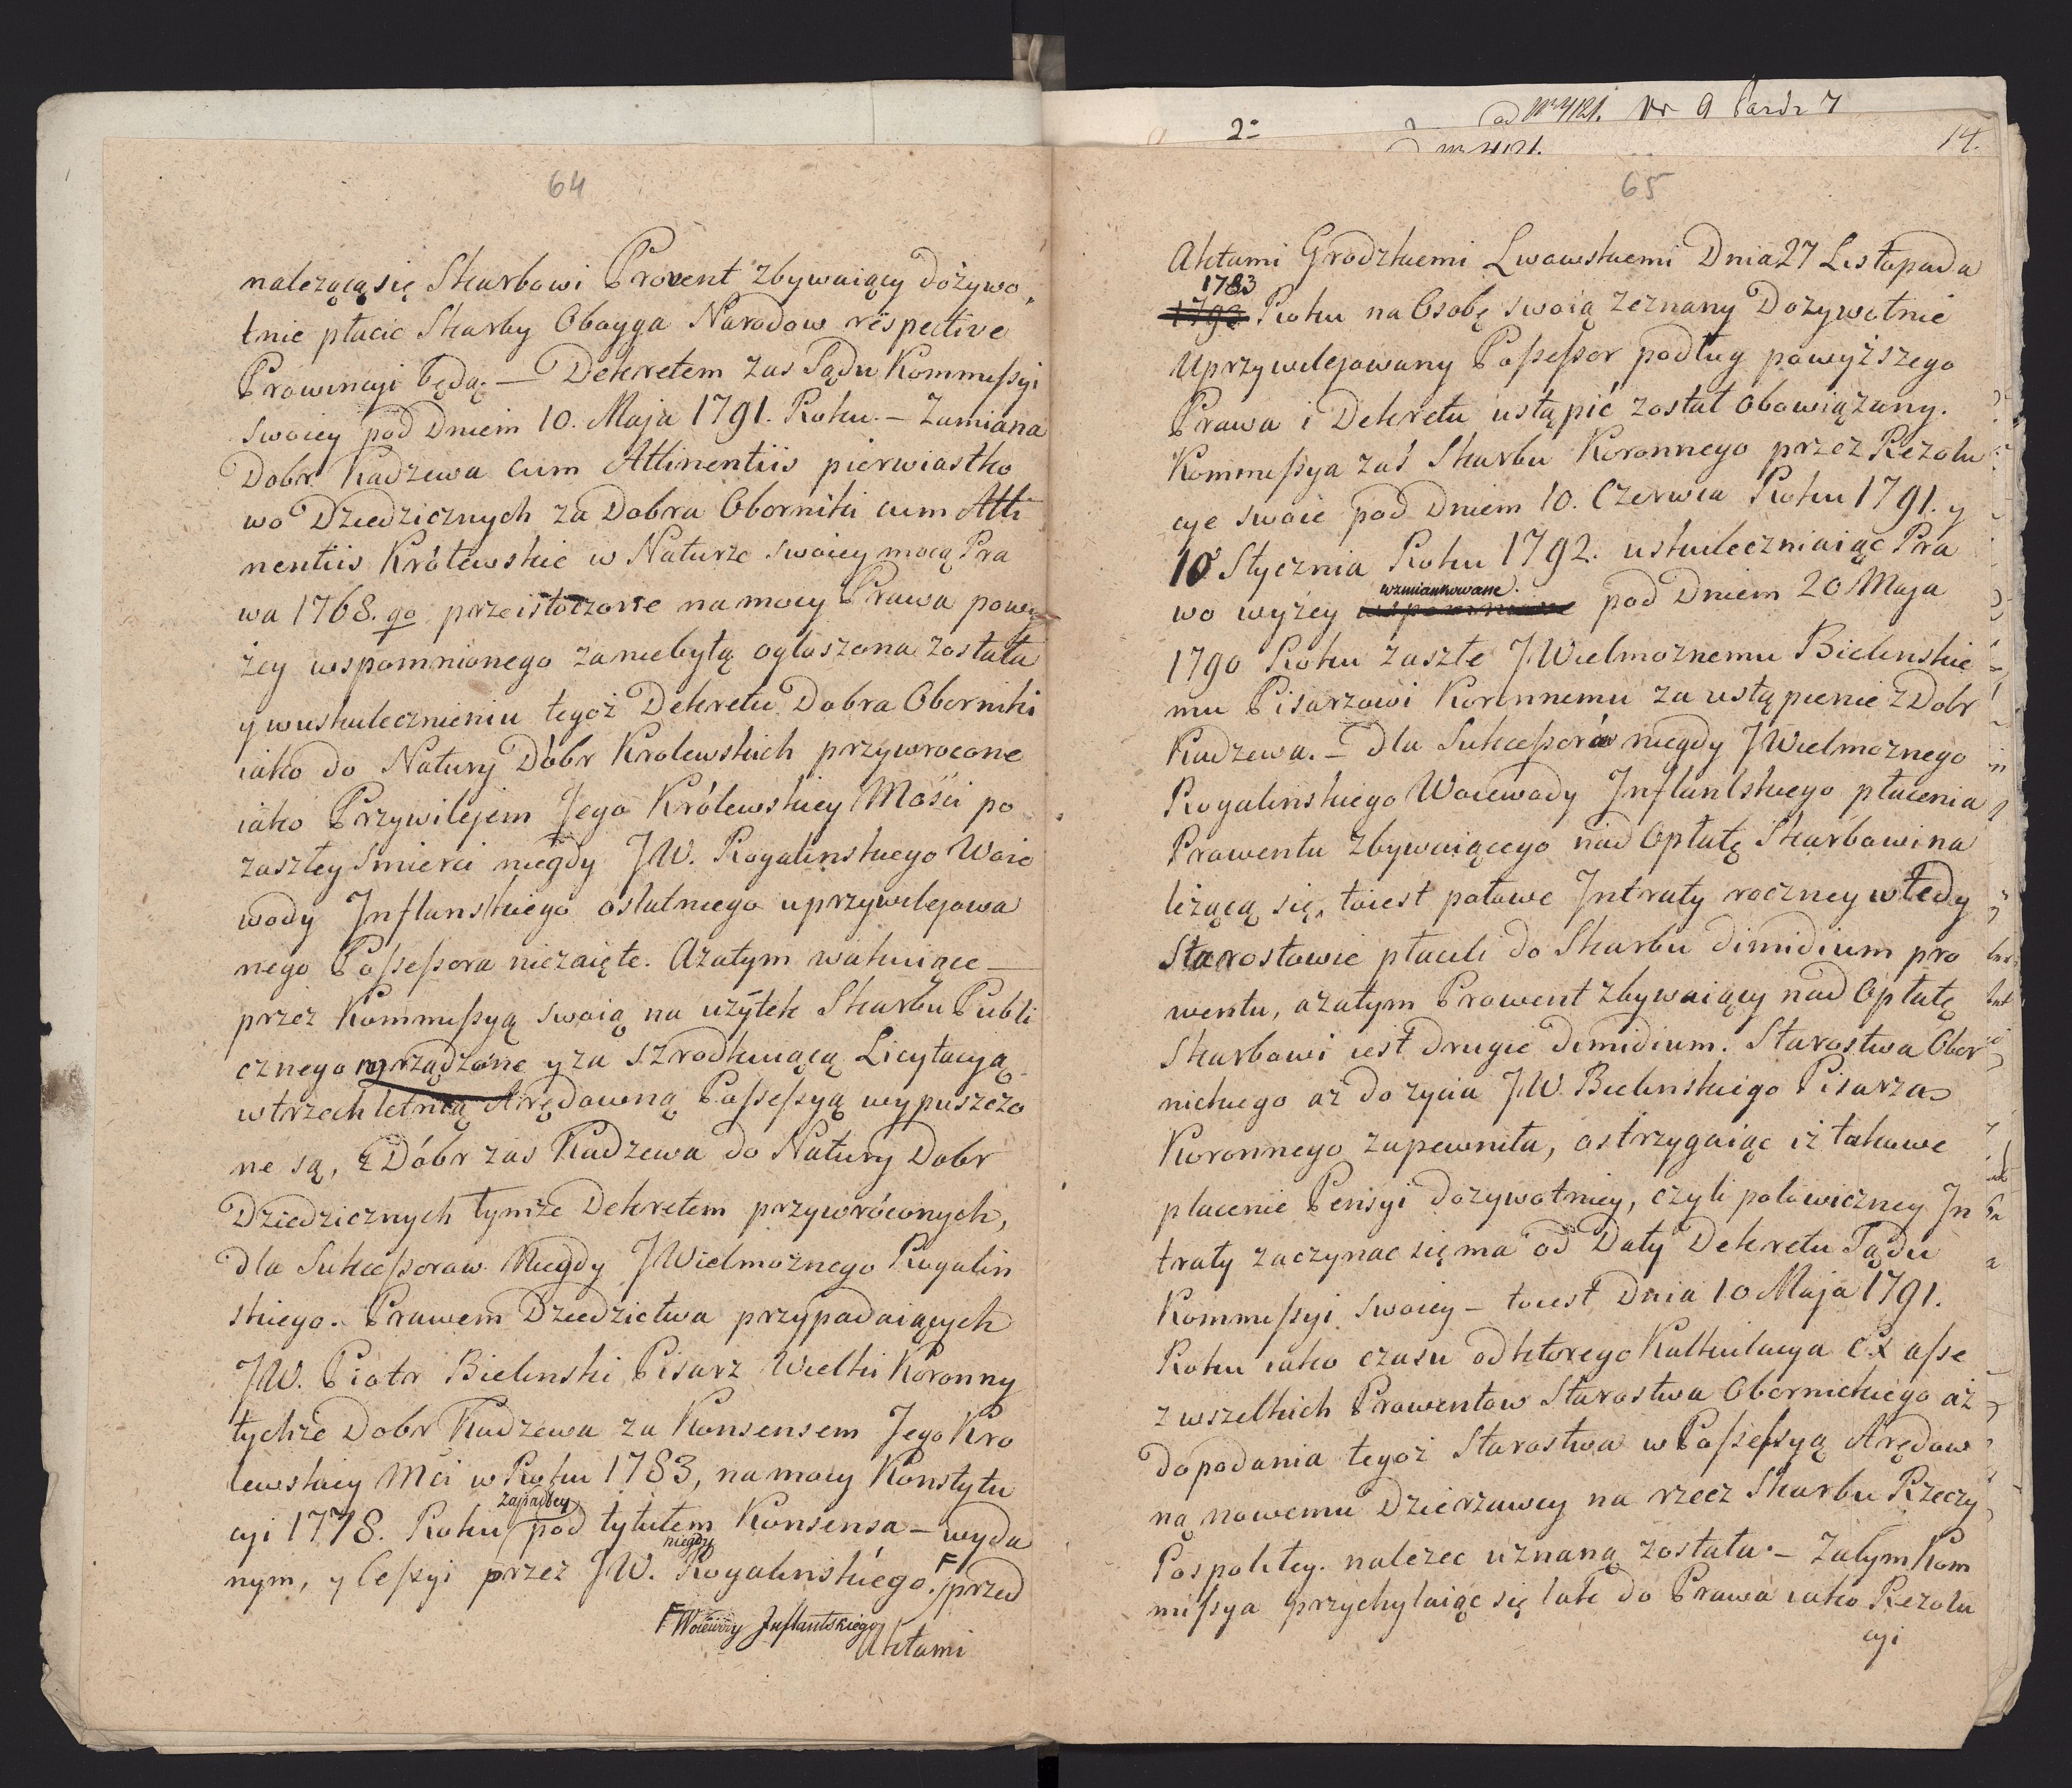 64
należącą się Skarbowi Prowent zbywaiący dożywo„
tnie płacić Skarby Oboyga Narodow respective
Prowincyi będą. — Dekretem zas Sądu Kommissyi
swoiey pod Dniem 10. Maja 1791. Roku. — Zamiana
Dobr Kadzewa cum Attinentiis pierwiastko
wo Dziedzicznych za Dobra Oborniki cum Atti
nentiis Królewskie w Naturze swoiey mocą Pra
wa 1768. go przeistoczone na mocy Prawa powy
żey wspomnionego za niebyłą ogłoszona została
y w uskutecznieniu tegoż Dekretu Dobra Oborniki
iako do Natury Dóbr Krolewskich przywrocone
iako Przywilejem Jego Królewskiey Mości po
zaszłey smierci niegdy JW. Rogalinskiego Woie
wody Inflanskiego ostatniego uprzywilejowa
nego Possessora niezaięte. A zatym wakuiące —
przez Kommissyą swoią na użytek Skarbu Publi
cznego rządzone y za szrodkuiącą Licytacyą
w trzechletnią Arędowną Possessyą wypuszczo
ne są, z Dóbr zas Kadzewa do Natury Dobr
Dziedzicznych tymże Dekretem przywróconych,
dla Sukcessorow Niegdy JWielmożnego Rogalin
skiego. Prawem Dziedzictwa przypadaiących
JW. Piotr Bielinski Pisarz Wielki Koronny
tychże Dobr Kadzewa za Konsensem Jego Kro
lewskiey Mci w Roku 1783, na mocy Konstytu
cyi 1778. Roku zapadłey pod tytułem Konsensa — wyda
nym, y Cessyi przez JW. niegdy Rogalinskiego. F przed
F Woiewody Inflantskiego
Aktami
2=
ad Nr 4121. Nr 9
Nr 4121.
14.
65
Aktami Grodzkiemi Lwowskiemi Dnia 27 Listopada
1783
Roku na Osobę swoią zeznany Dożywotnie
Uprzywilejowany Possessor podług powyższego
Prawa i Dekretu ustąpić został obowiązany.
Kommissya zaś Skarbu Koronnego przez Rezolu
cye swoie pod Dniem 10. Czerwca Roku 1791. y
10 Stycznia Roku 1792. uskuteczniaiąc Pra
wo wyżey wzmiankowane. pod Dniem 20 Maja
1790 Roku zaszłe JWielmożnemu Bielinskie
mu Pisarzowi Koronnemu za ustąpienie z Dobr
Kadzewa. — dla Sukcessorów niegdy JWielmożnego
Rogalinskiego Woiewody Inflantskiego płacenia
Prowentu zbywaiącego nad Opłatę Skarbowi na
leżącą się, toiest połowę Intraty roczney wtedy
Starostowie płacili do Skarbu dimidium pro
wentu, a zatym Prowent zbywaiący nad Opłatę
Skarbowi iest drugie dimidium. Starostwa Obor
nickiego aż do życia JW. Bielinskiego Pisarza
Koronnego zapewniła, ostrzygaiąc iż takowe
płacenie Pensyi dożywotniey, czyli połowiczney In
traty zaczynac się ma od Daty Dekretu Sądu
Kommissyi swoiey — toiest Dnia 10 Maja 1791.
Roku iako czasu od ktorego Kalkulacya Ex asse
z wszelkich Prowentow Starostwa Obornickiego aż
do podania tegoż Starostwa w Possessyą Arędow
ną nowemu Dzierżawcy na rzecz Skarbu Rzeczy
Pospolitey. należec uznaną została. — Zatym Kom
missya przychylaiąc się tak do Prawa iako Rezolu
cyi